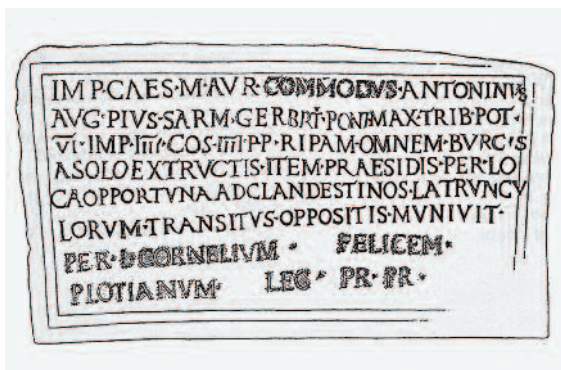 IMP·CAES·M·AVR·COMMODVS·ANTONINVS
AVG·PIVS·SARM·GER·BRIT·PONT·MAX·TRIB·POT·
VI·IMP·IIII·COS·IIII·PP·RIPAM·OMNEM·BVRGIS
ASOLO EXTRVCTIS·ITEM·PRAESIDIS·PER·LO
CA OPPORTVNA AD CLANDESTINOS·LATRVNCV
LORVM·TRANSITVS·OPPOSITIS·MVNIVIT·
PER·L·CORNELIVM· FELICEM·
PLOTIANVM· LEG· PR·PR·